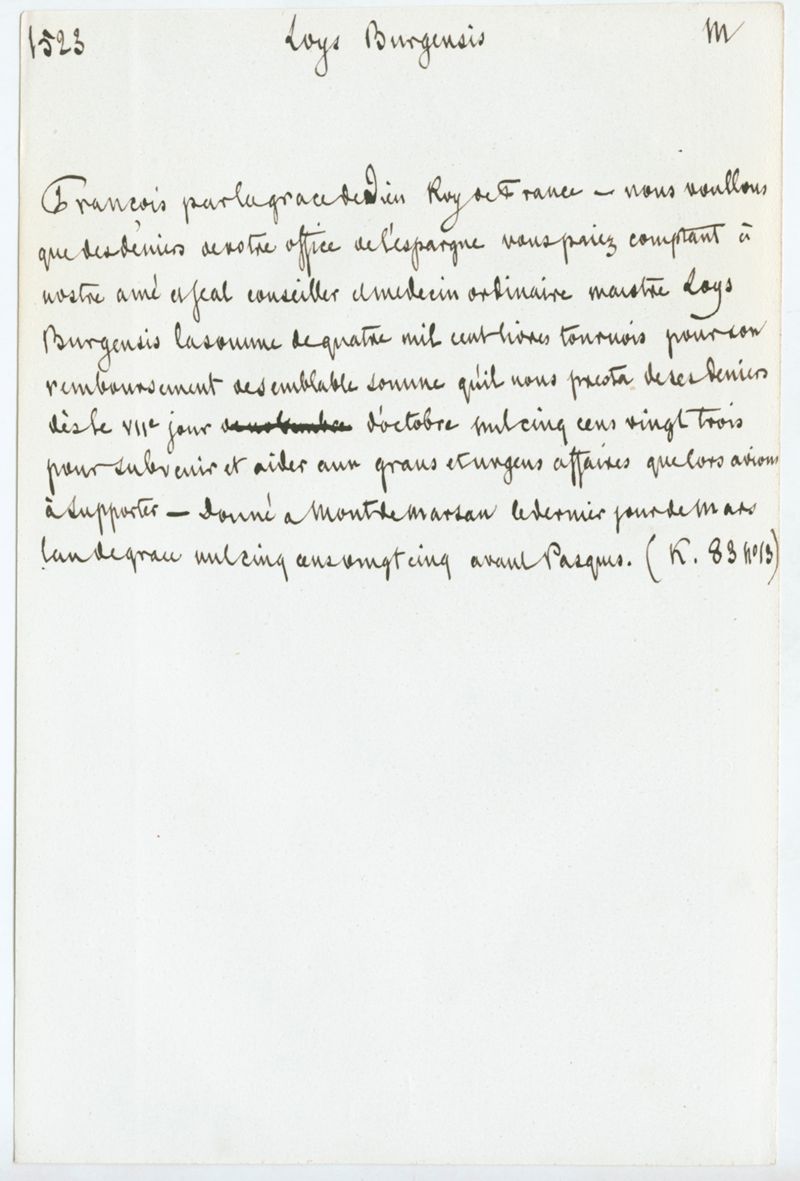 1523 Loys Burgensis M
François par la grace de Dieu Roy de France — nous voullons
que des déniers de votre office de l'espargne vous paiez comptant à
nostre amé et féal conseiller et medecin ordinaire maistre Loys
Burgensis la somme de quatre mil cent livres tournois pour son
remboursement de semblable somme qu'il nous presta de ses deniers
dès le VIIe jour de novembre d'octobre mil cinq cens vingt trois
pour subvenir et aider aux grans et urgens affaires que lors avions
à supporter — Donné a Mont de Marsan le dernier jour de Mars
l'an de grace mil cinq cens vingt cinq avant Pasques. (K. 83 no 13)